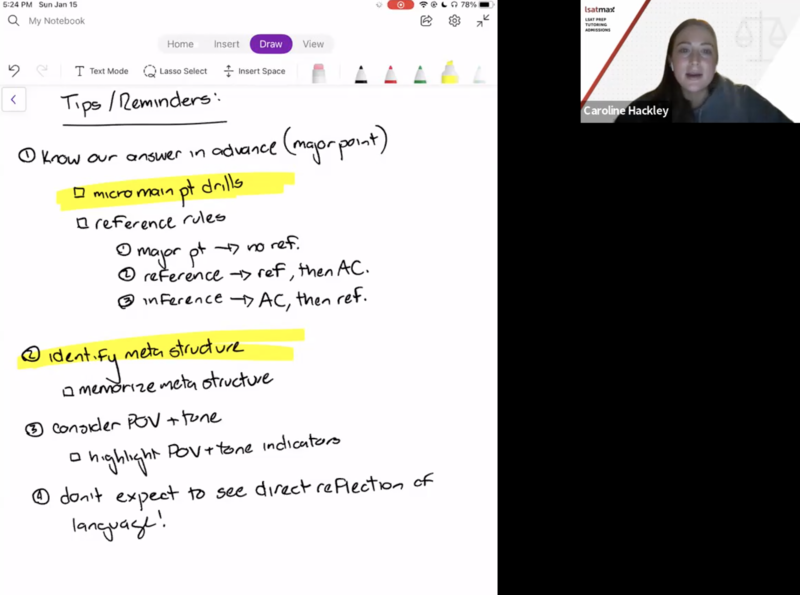 5:24 PM Sun Jan 15
78%
My Notebook
Home Insert Draw View
Text Mode Lasso Select Insert Space
Tips/Reminders:
① Know our answer in advance (major point)
micro main pt drills
reference rules
① major pt → no ref.
② reference → ref, then AC.
③ inference → AC, then ref.
② identify meta structure
memorize meta structure
③ consider POV + tone
highlight POV + tone indicators
④ don't expect to see direct reflection of
language!
lsatmax
LSAT PREP
TUTORING
ADMISSIONS
Caroline Hackley